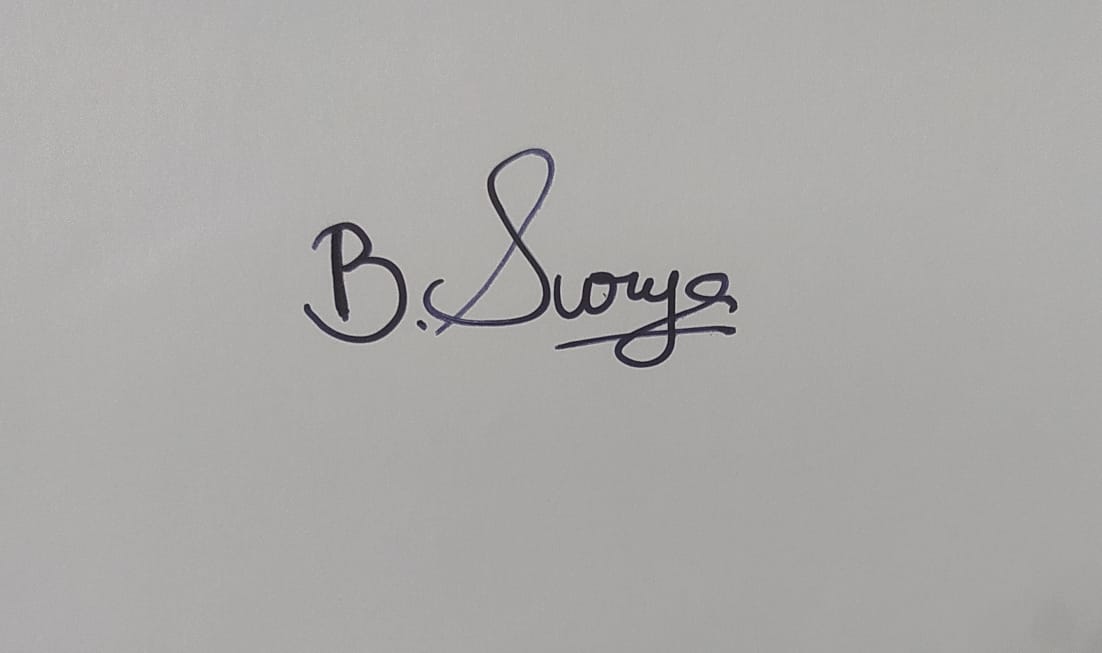 B. Surya